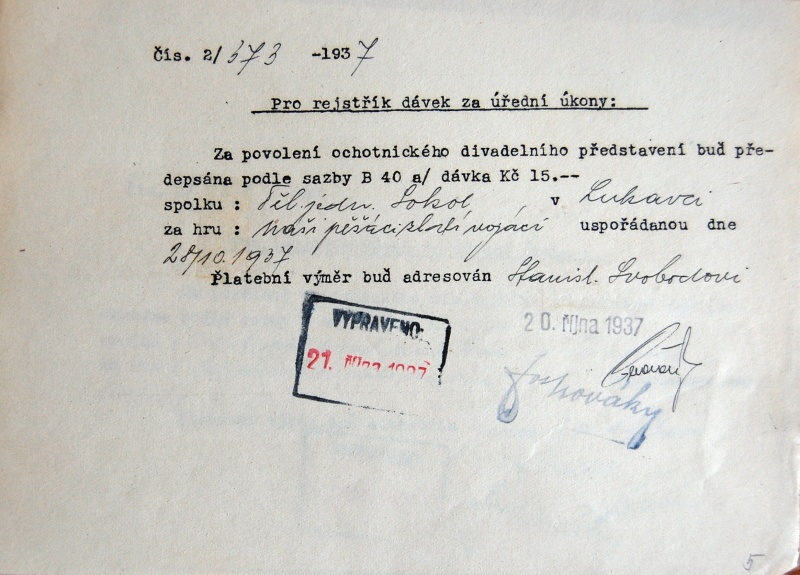 Čís. 2/373 -1937
Pro rejstřík dávek za úřední úkony:
Za povolení ochotnického divadelního představení buď pře-
depsána podle sazby B 40 a/ dávka Kč 15.--
spolku : Těl. jedn. Sokol, v Lukavci
za hru : naši pěšáci zlatí vojáci uspořádanou dne
28/10. 1937
Platební výměr buď adresován Stanisl. Svobodovi
VYPRAVENO:
20. října 1937
21. října 1937
5